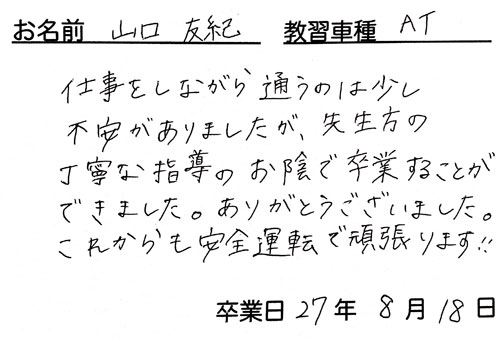 お名前 山口 友紀 教習車種 AT
仕事をしながら通うのは少し
不安がありましたが、先生方の
丁寧な指導のお陰で卒業することが
できました。ありがとうございました。
これからも安全運転で頑張ります!!
卒業日 27年 8月 18日